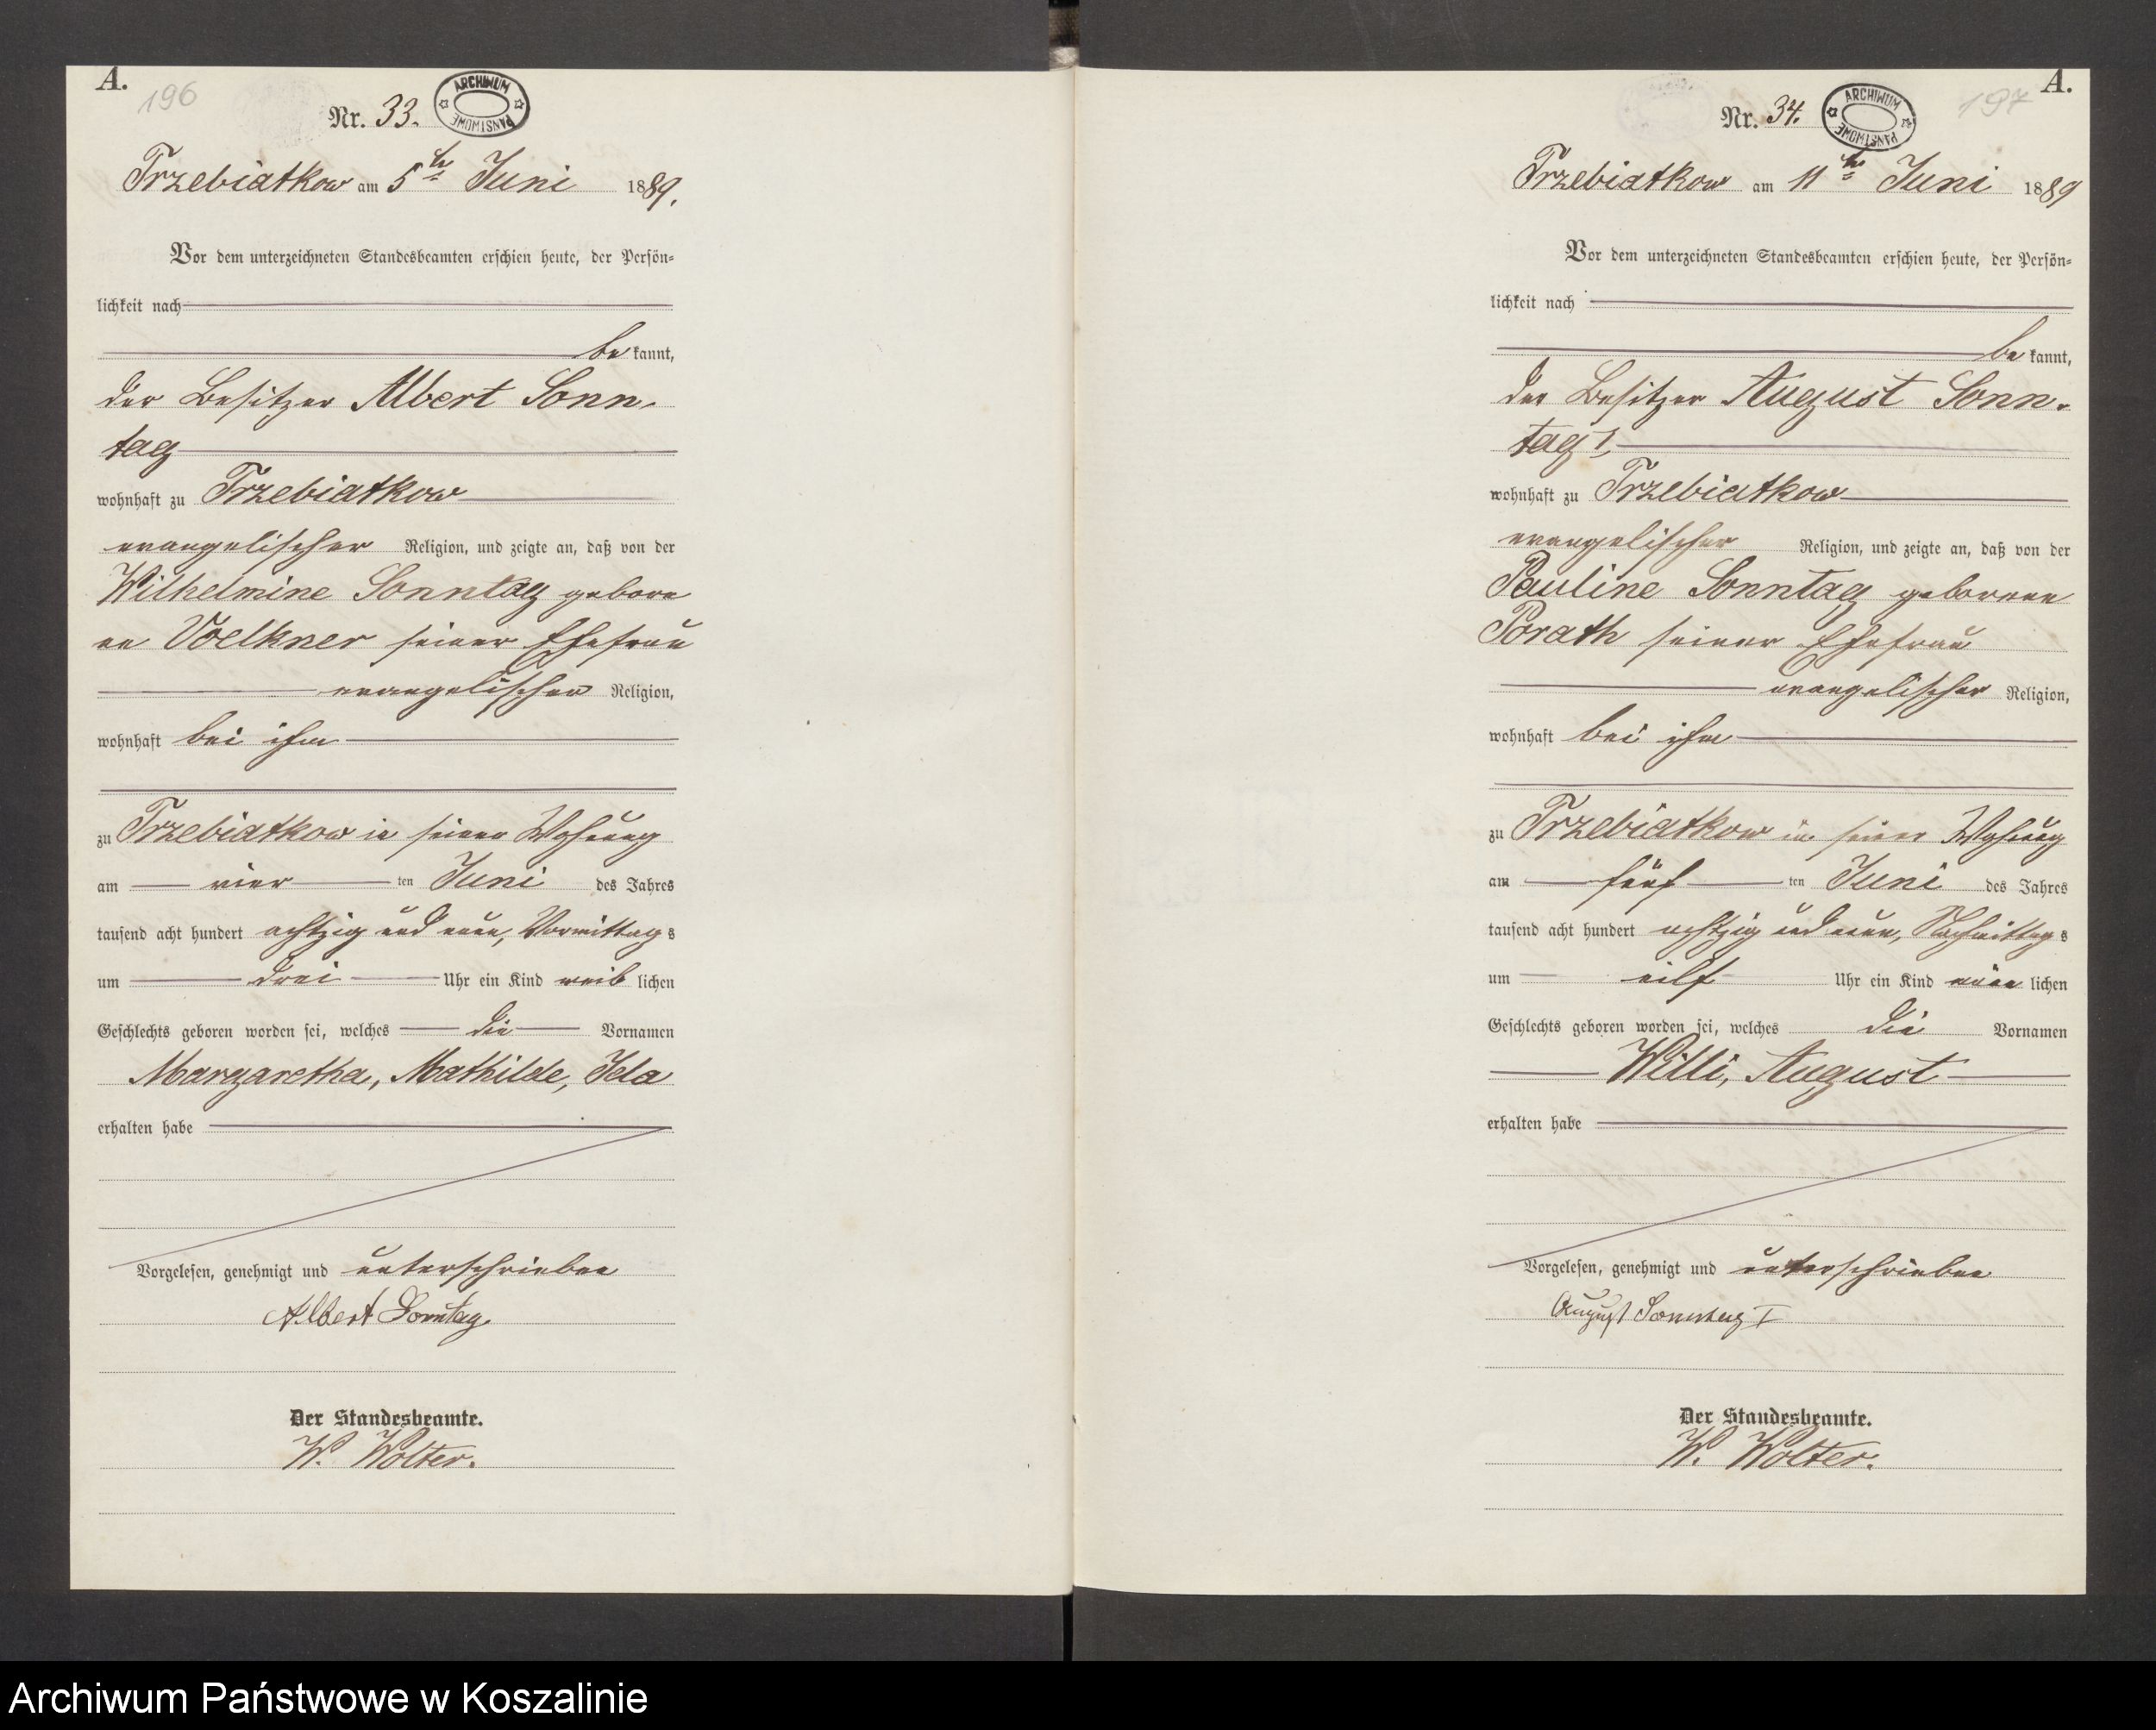 A.
196
Nr. 33.
ARCHIWUM PAŃSTWOWE
Trzebiatkow am 5ten Juni 1889.
Vor dem unterzeichneten Standesbeamten erschien heute, der Persön=
lichkeit nach
be kannt,
der Besitzer Albert Sonn-
tag
wohnhaft zu Trzebiatkow
evangelischer Religion, und zeigte an, daß von der
Wilhelmine Sonntag gebore
ne Voelkner seiner Ehefrau
evangelischer Religion,
wohnhaft bei ihm
zu Trzebiatkow in seiner Wohnung
am vier ten Juni des Jahres
tausend acht hundert achtzig und neun, Vormittag s
um drei Uhr ein Kind weib lichen
Geschlechts geboren worden sei, welches die Vornamen
Margaretha, Mathilde, Ida
erhalten habe
Vorgelesen, genehmigt und unterschrieben
Albert Sonntag.
Der Standesbeamte.
W. Wolter.
A.
197
Nr. 34.
ARCHIWUM PAŃSTWOWE
Trzebiatkow am 11ten Juni 1889
Vor dem unterzeichneten Standesbeamten erschien heute, der Persön=
lichkeit nach
be kannt,
der Besitzer August Sonn-
tag I,
wohnhaft zu Trzebiatkow
evangelischer Religion, und zeigte an, daß von der
Pauline Sonntag geborene
Porath seiner Ehefrau
evangelischer Religion,
wohnhaft bei ihm
zu Trzebiatkow in seiner Wohnung
am fünf ten Juni des Jahres
tausend acht hundert achtzig und neun, Nachmittag s
um eilf Uhr ein Kind män lichen
Geschlechts geboren worden sei, welches die Vornamen
Willi, August
erhalten habe
Vorgelesen, genehmigt und unterschrieben
August Sonntag I
Der Standesbeamte.
W. Wolter.
Archiwum Państwowe w Koszalinie